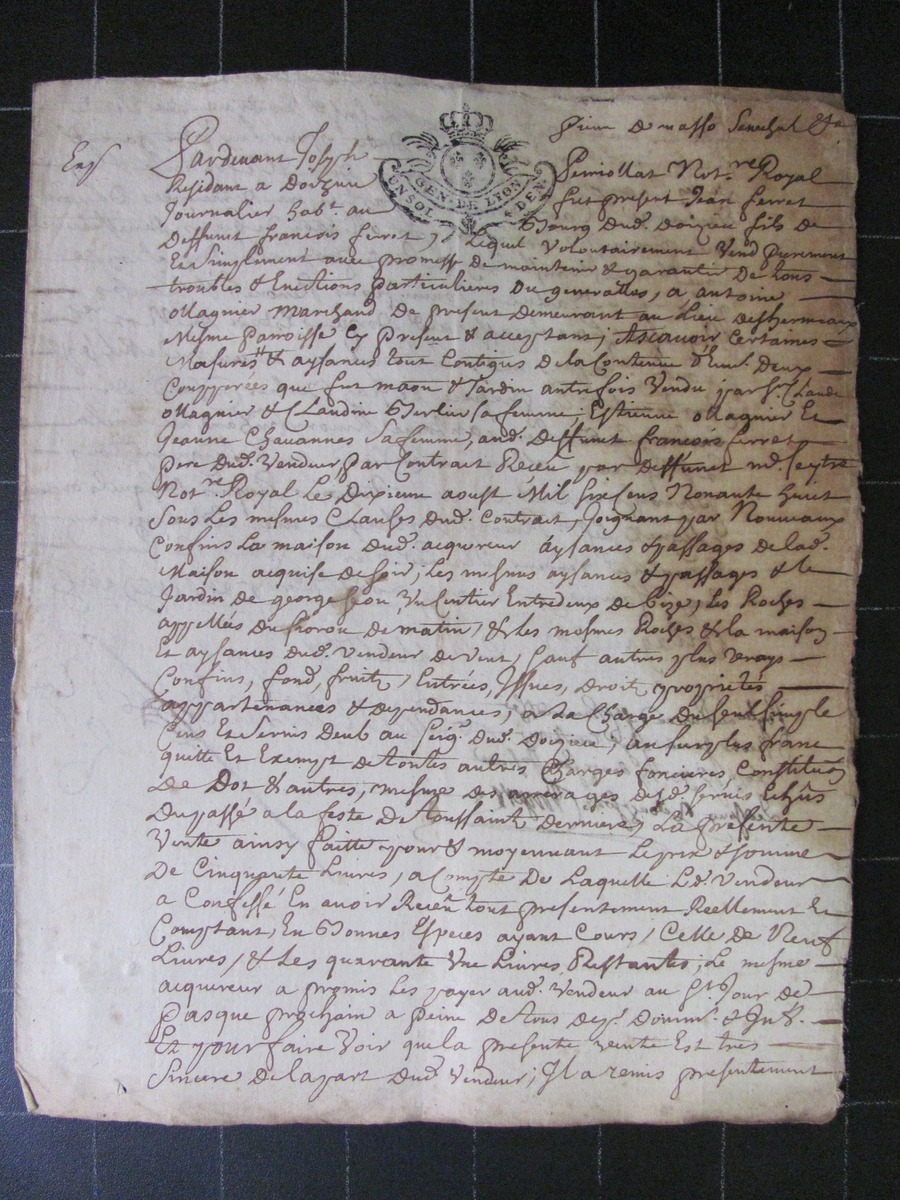 pierre De masso Senechal &a
Exp
GEN. DE LION
UN SOL DEN
Pardevant Joseph Perriollat Not.re Royal
Residant a Doizieu fut present Jean ferret
Journalier hab.t au Bourg dud. doizieu fils de
Deffunct francois ferret, Lequel Volontairement Vend purement
Et Simplement avec promesse de maintenir & garantir De tous
troubles & Evictions particulieres ou generalles, a antoine
Magnier Marchand De present Demeurant au Lieu
Mesme parroisse Cy Present & acceptant; Ascavoir Certaines
Masures & aysances tout Contigus De la Contenue
Coupperées que fut maon & Jardin autrefois Vendu par Claude
Magnier & Claudine sa femme, Estienne Magnier Et
Jeanne Chavannes Sa femme, aud. Deffunct francois ferret
pere Dud. Vendeur par Contract Receu par deffunct
Not.re Royal Le Dixieme aoust Mil Six Cens Nonante huict
Sous Les mesmes Clauses dud. contract, Joignant par Nouveaux
Confins La maison dud. acquereur aysances & passages de lad.
Maison acquise de soir, Les mesmes aysances & passages & le
Jardin de george Un sentier Entredeux de bize, Les Roches
appellées de matin, & Les mesmes Roches & la maison
Et aysances dud. Vendeur de Vent, Sauf autres plus Vrays
Confins, fond, fruitz, Entrées, Issues, droitz proprietés
appartenances & dependances, a La Charge Du seul Simple
Cens Et Servis Deub au Seig.r Dud. Doizieu, au surplus franc
quitte Et Exempt de toutes autres Charges foncieres, Constitution
De Dot & autres, mesme des arrerages desd. servis Echeus
Du passé a la feste De toussaintz derniere, La presente
Vente ainsy faitte pour & moyennant Le prix & somme
De Cinquante Livres, a Compte De Laquelle Led. Vendeur
a Confessé En avoir Receu tout presentement Reellement Et
Comptant En Bonnes Especes ayant Cours, Celle de Neuf
Livres, & Les quarante Une Livres Restantes, Le mesme
acquereur a promis Les payer aud. Vendeur au Jour de
Pasque prochain a peine De tous dep. domm. & Int.
Et pour faire Voir que la presente vente Est tres
Sincere De la part Dud. Vendeur; Il a remis presentement